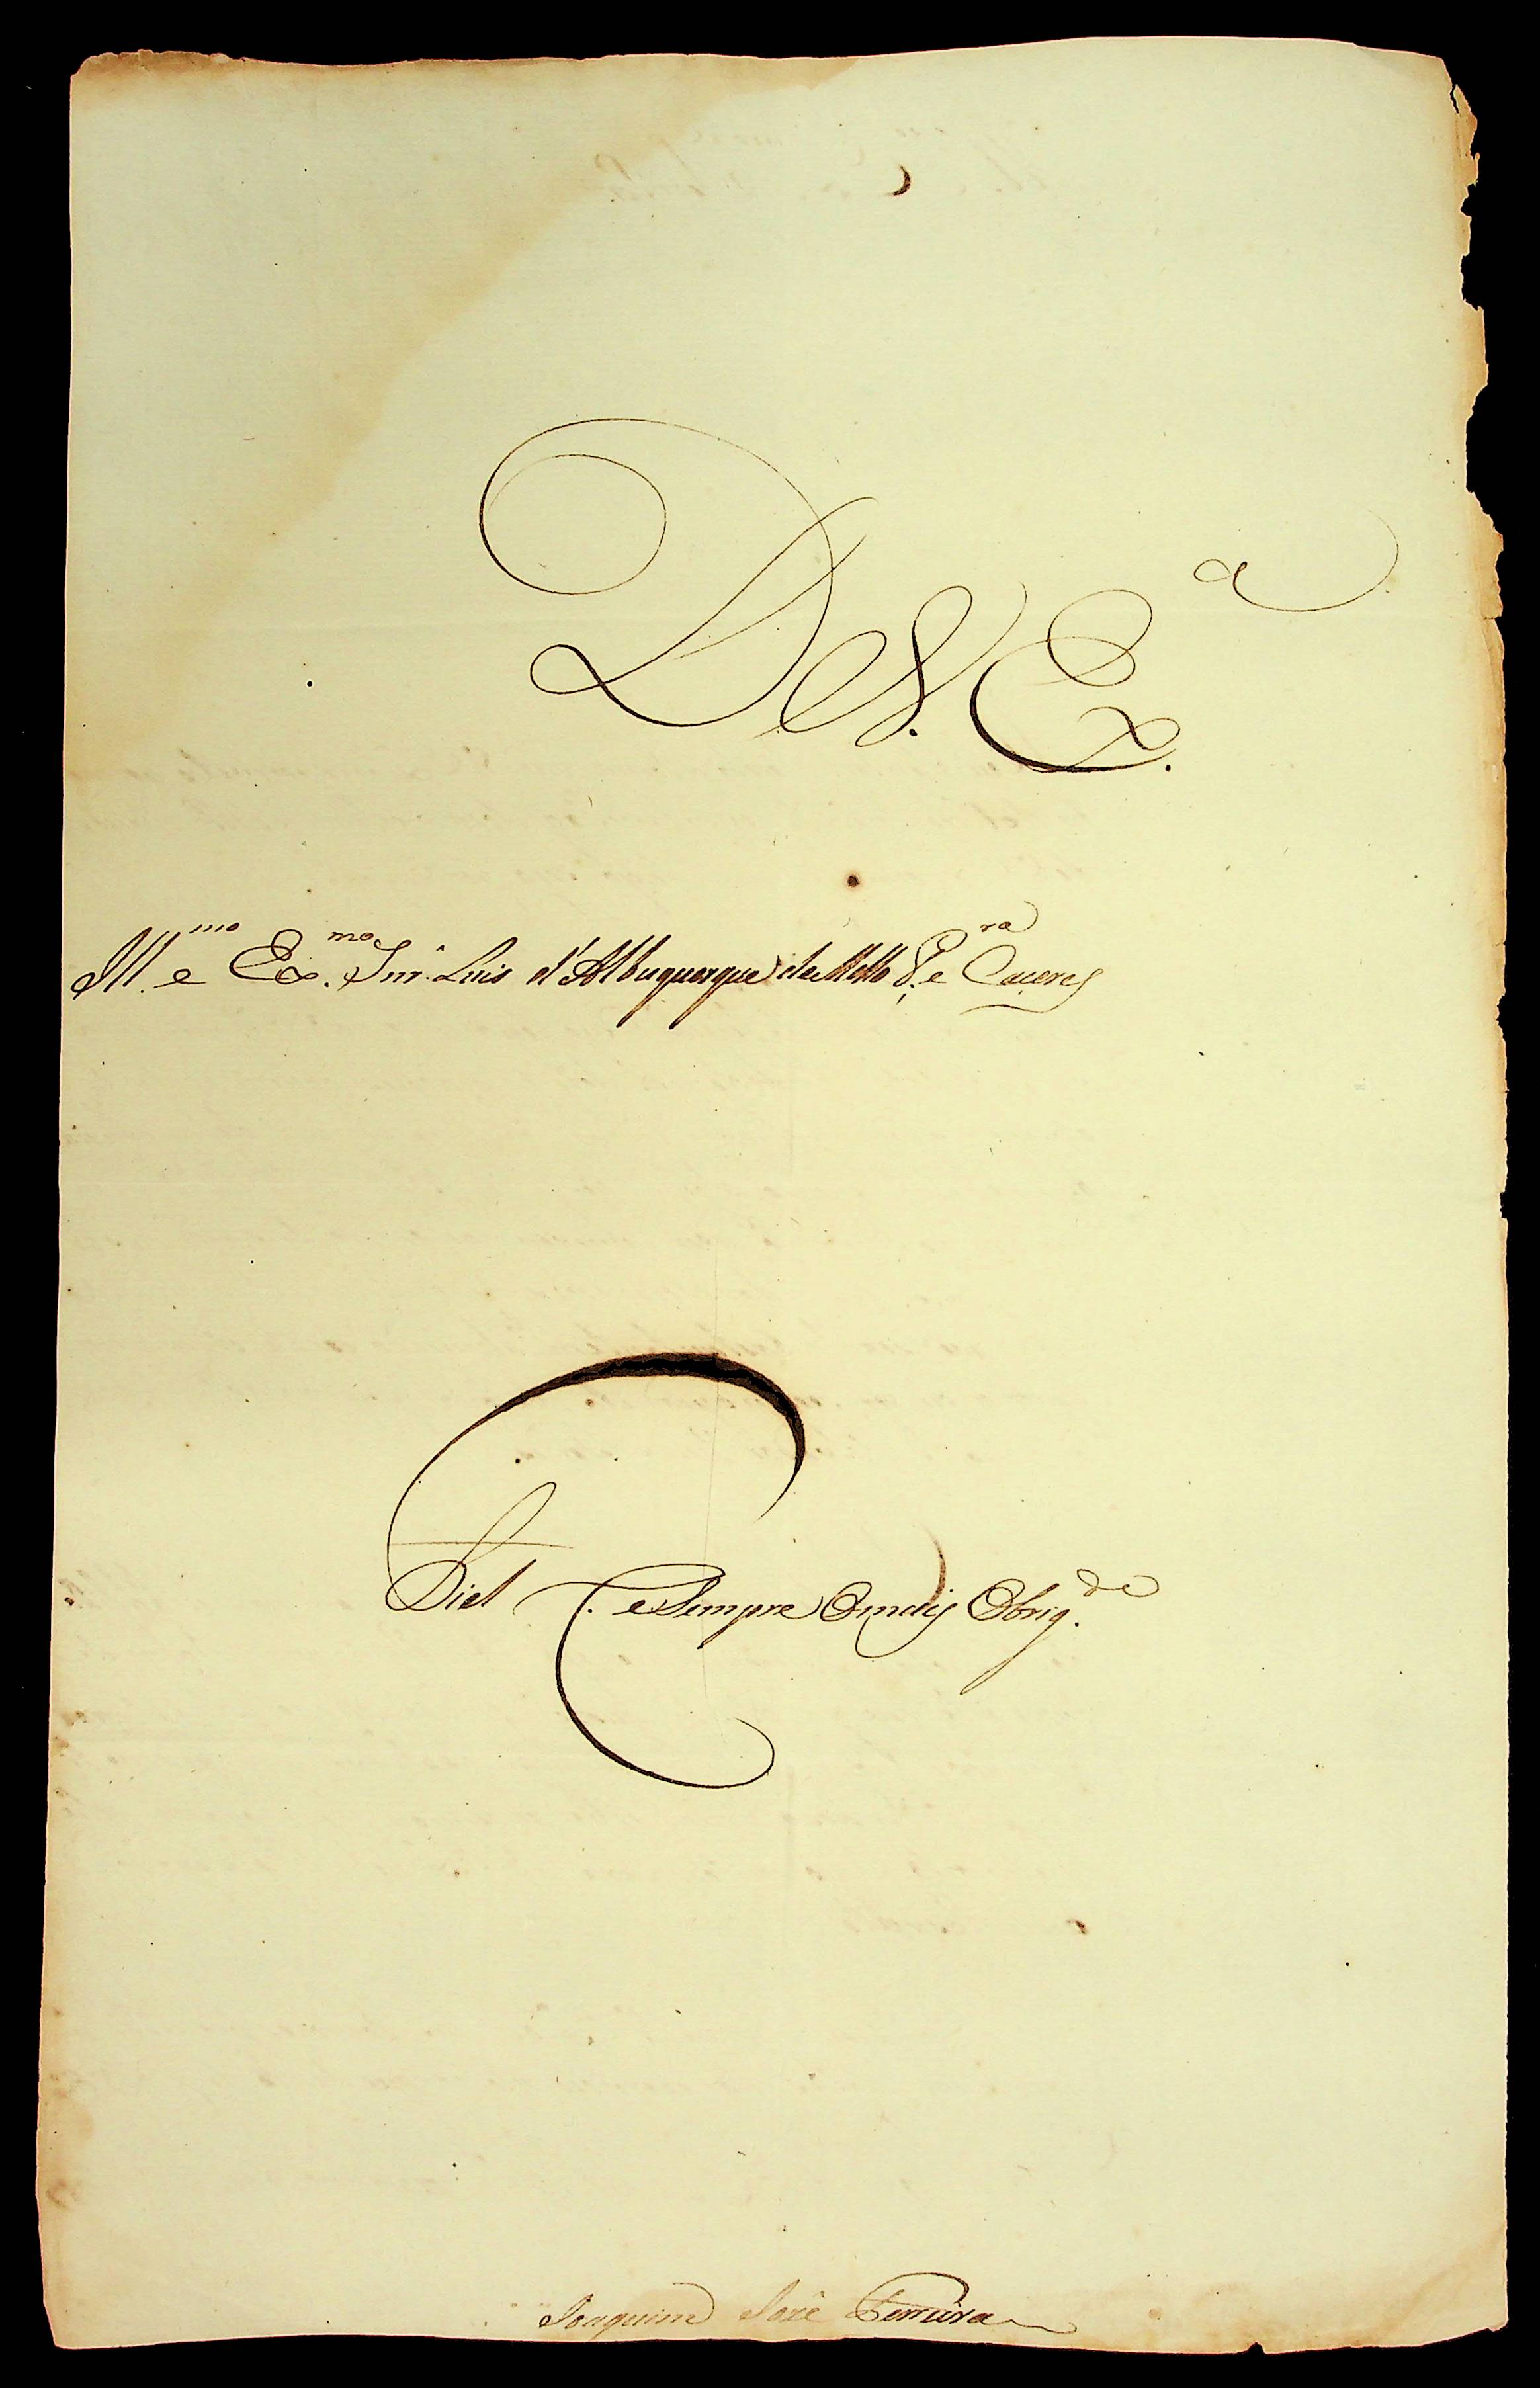 De V. Ex.ª
Ill.mo e Ex.mo Snr. Luis d'Albuquerque de Mello P.ra e Caceres
Fiel e Sempre O mais Obrig.do
Joaquim José Ferreira